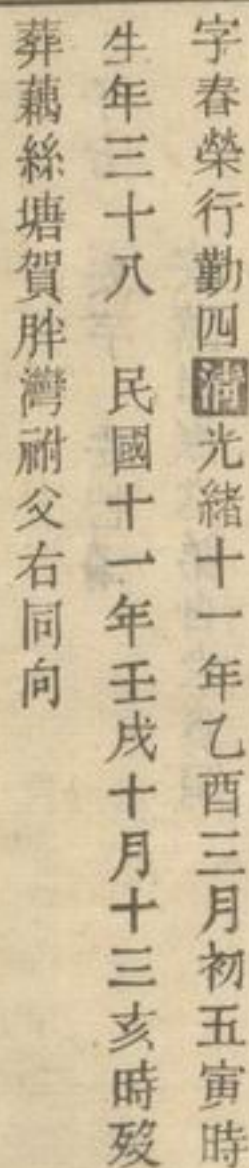 字春榮行勤四清光緒十一年乙酉三月初五寅時
生年三十八　民國十一年壬戌十月十三亥時歿
葬藕絲塘賀胖灣祔父右同向